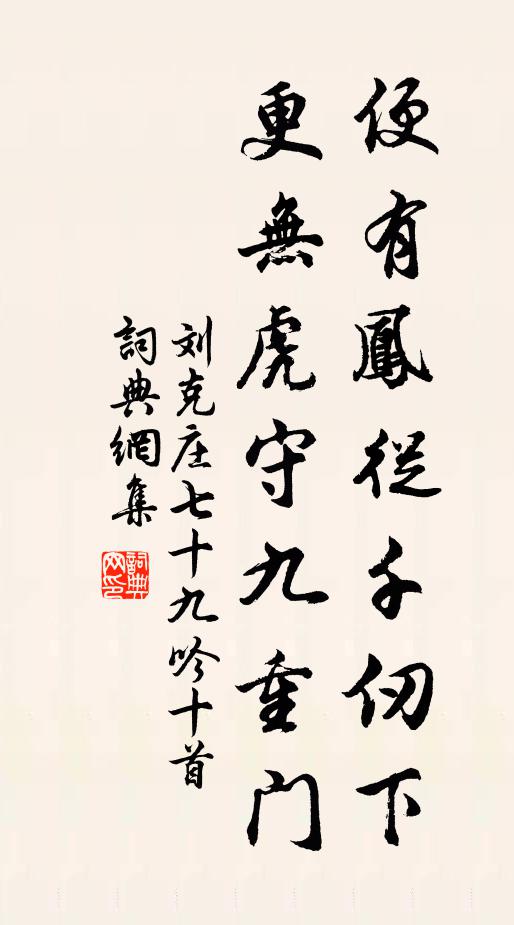 便有鳳從千仞下
更無虎守九重門
刘克庄七十九吟十首
詞典網集
詞典网印